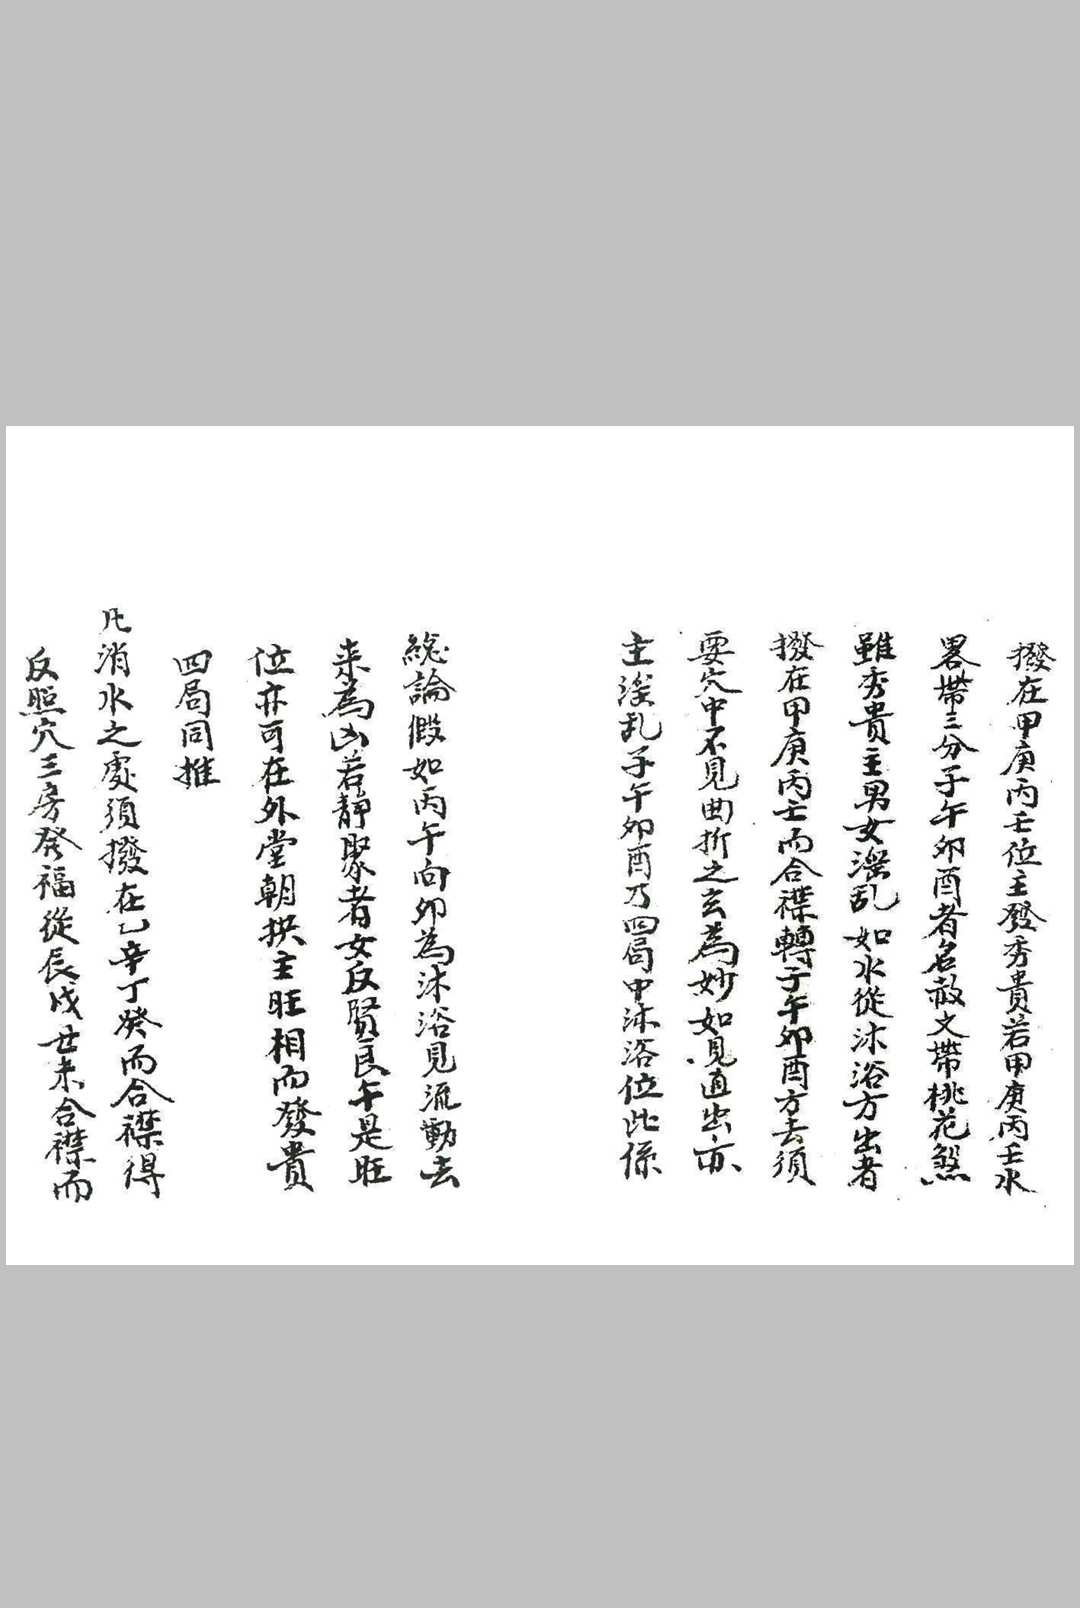 撥在甲庚丙壬位主發秀貴若甲庚丙壬水
畧帶三分子午卯酉者名赦文帶桃花煞
雖秀貴主男女淫乱如水從沐浴方出者
撥在甲庚丙壬而合襟轉子午卯酉方去須
要穴中不見曲折之玄為妙如見直出亦
主淫乱子午卯酉乃四局中沐浴位此係
総論假如丙午向卯為沐浴見流動去
来為凶若靜聚者女反賢良午是旺
位亦可在外堂朝拱主旺相而發貴
四局同推
凡消水之處須撥在乙辛丁癸而合襟得
反照穴三房癸福從辰戌丑未合襟而